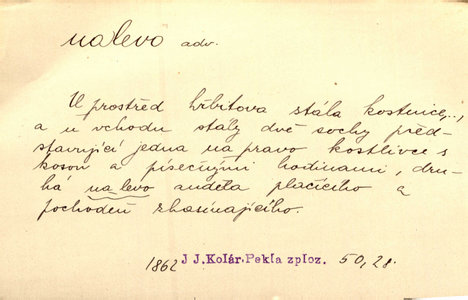 nalevo adv.
U prostřed hřbitova stála kostnice,..,
a u vchodu stály dvě sochy před-
stavující jedna na pravo kostlivce s
kosou a písečnými hodinami, dru-
ha na levo anděla plačícího a
pochodeň zhasínajícího.
1862 J J. Kolár. Pekla zploz. 50, 28.